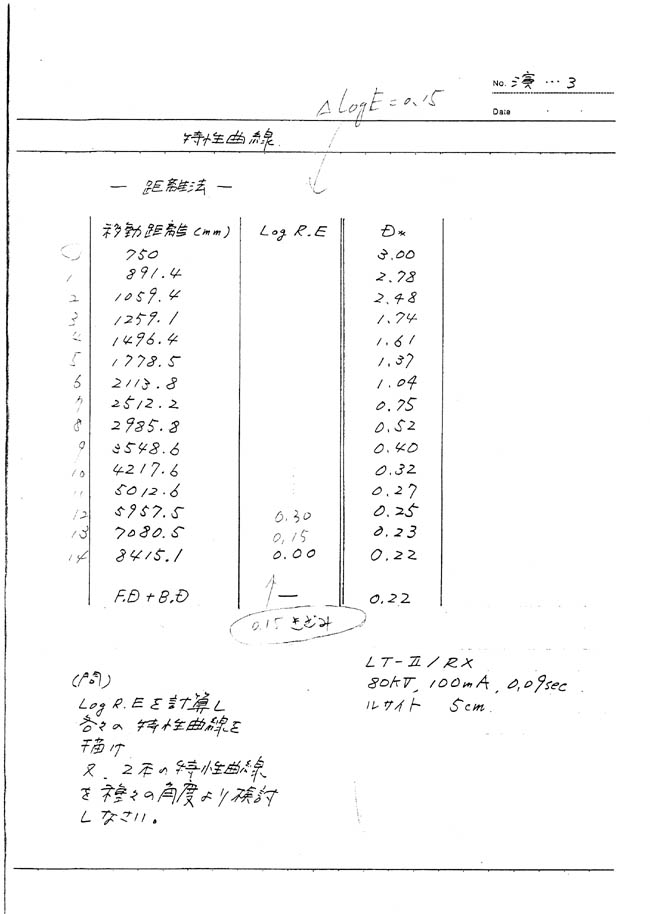 No. 演…3
Date
ΔLogE=0.15
特性曲線
— 距離法 —
移動距離(mm) LogR.E D*
0 750 3.00
1 891.4 2.78
2 1059.4 2.48
3 1259.1 1.74
4 1496.4 1.61
5 1778.5 1.37
6 2113.8 1.04
7 2512.2 0.75
8 2985.8 0.52
9 3548.6 0.40
10 4217.6 0.32
11 5012.6 0.27
12 5957.5 0.30 0.25
13 7080.5 0.15 0.23
14 8415.1 0.00 0.22
F.D+B.D — 0.22
0.15きざみ
LT-II/RX
80kV, 100mA, 0.09sec
ルサイト 5cm
(問)
LogR.Eを計算し
各々の特性曲線を
描け
又、2本の特性曲線
を種々の角度より検討
しなさい。